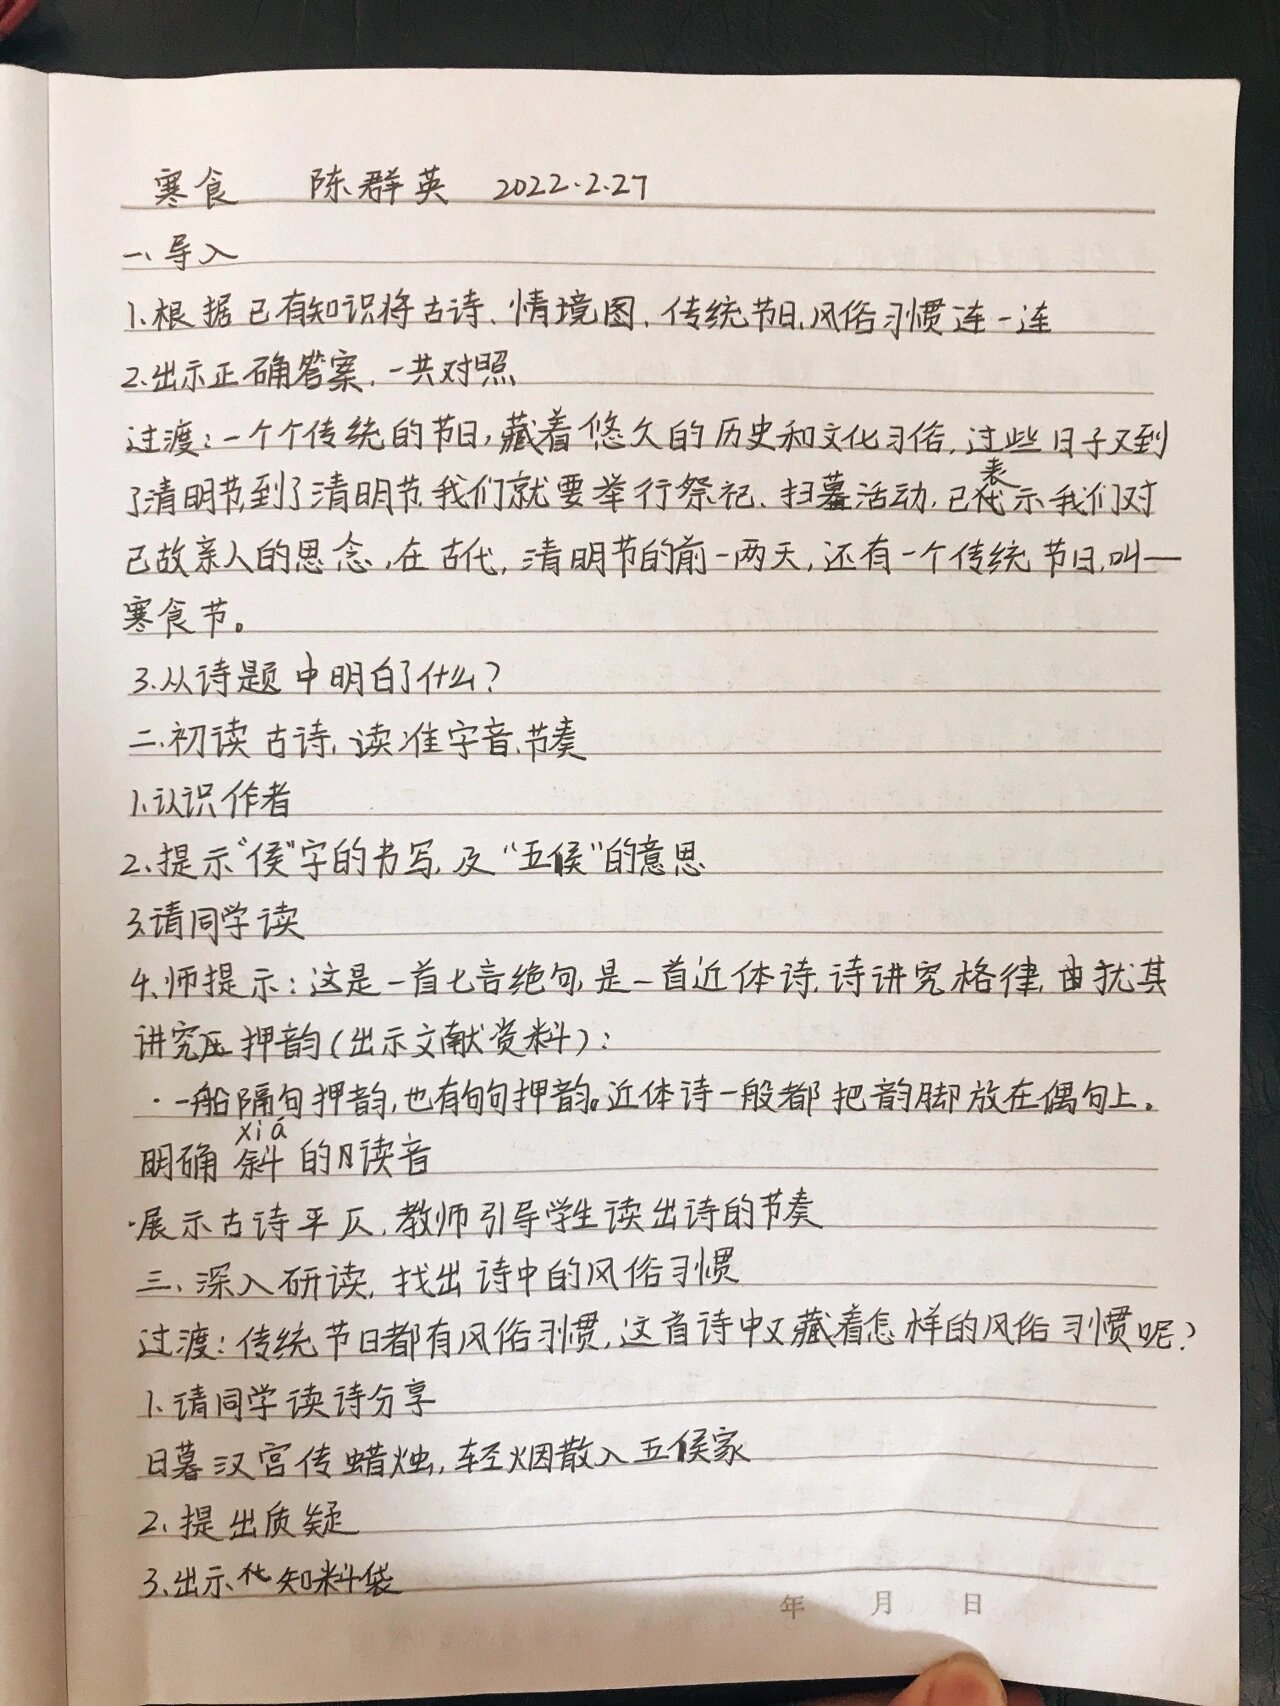 寒食 陈群英 2022.2.27
一、导入
1.根据已有知识将古诗、情境图、传统节日,风俗习惯连一连
2.出示正确答案,一共对照
过渡:一个个传统的节日,藏着悠久的历史和文化习俗,过些日子又到
了清明节,到了清明节,我们就要举行祭祀、扫墓活动,已表示我们对
已故亲人的思念,在古代,清明节的前一两天,还有一个传统节日,叫一
寒食节。
3.从诗题中明白了什么?
二、初读古诗,读准字音,节奏
1.认识作者
2.提示“侯”字的书写,及“五侯”的意思
3.请同学读
4.师提示:这是一首七言绝句,是一首近体诗,诗讲究格律,由扰其
讲究 押韵(出示文献资料):
·一般隔句押韵,也有句句押韵。近体诗一般都把韵脚放在偶句上。
xiá
明确 斜 的 读音
·展示古诗平仄,教师引导学生读出诗的节奏
三、深入研读,找出诗中的风俗习惯
过渡:传统节日都有风俗习惯,这首诗中又藏着怎样的风俗习惯呢?
1.请同学读诗分享
日暮汉宫传蜡烛,轻烟散入五侯家
2.提出质疑
3.出示 知料袋
年 月 日